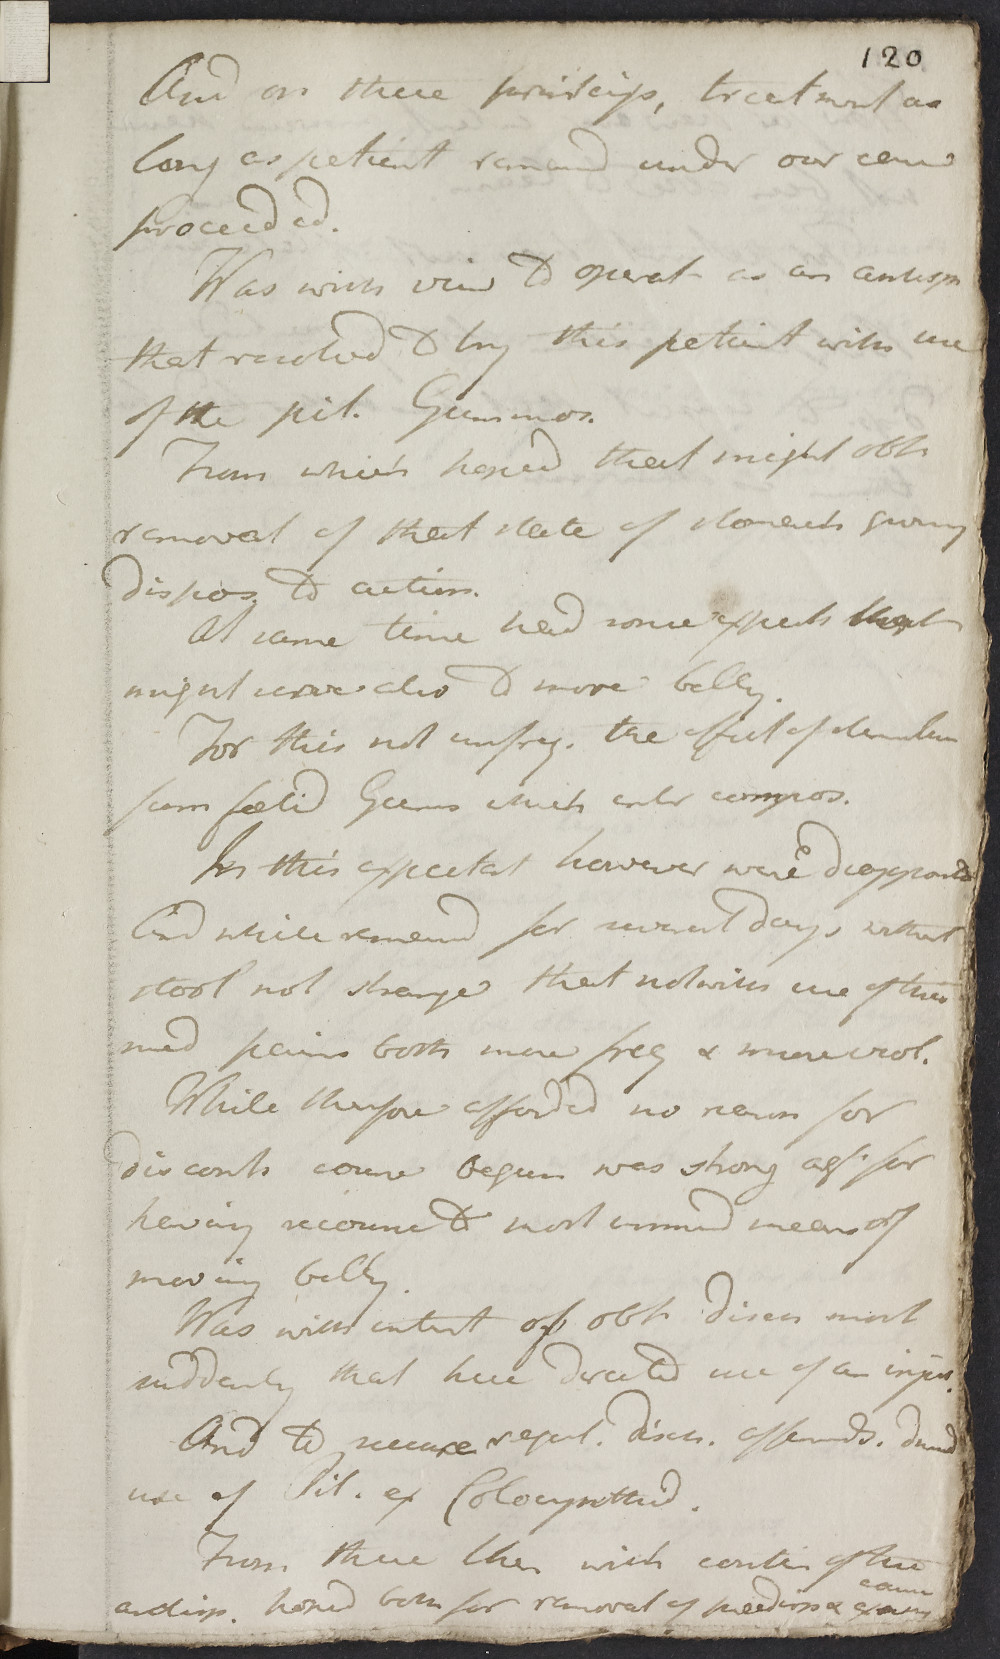 120
And on these princips, treatment as
long as patient remaind under our care
proceeded.
Was with view to operat as an antisp
that resolved to try this patient with use
of the pil. Gummos.
From which hoped that might obtn
removal of that state of stomach giving
dispos. to action.
At same time had some expect that
might serve also to move belly.
For this not unfreq. the effect of
foetid Gums which enter compos.
In this expectat however were disappointd
And while remaind for several days without
stool not strange that notwith use of this
med pains both more freq & more viol.
While therefore afforded no reason for
discont course begun was strong agt for
having recourse to most immed means of
moving belly.
Was with intent of obt disch most
suddenly that here directed use of an inject.
And to secure regul. disch. afterwds.
use of Pil. ex Colocynthid.
From these then with contin of the
antisp. hoped both for removal of predisp & causes